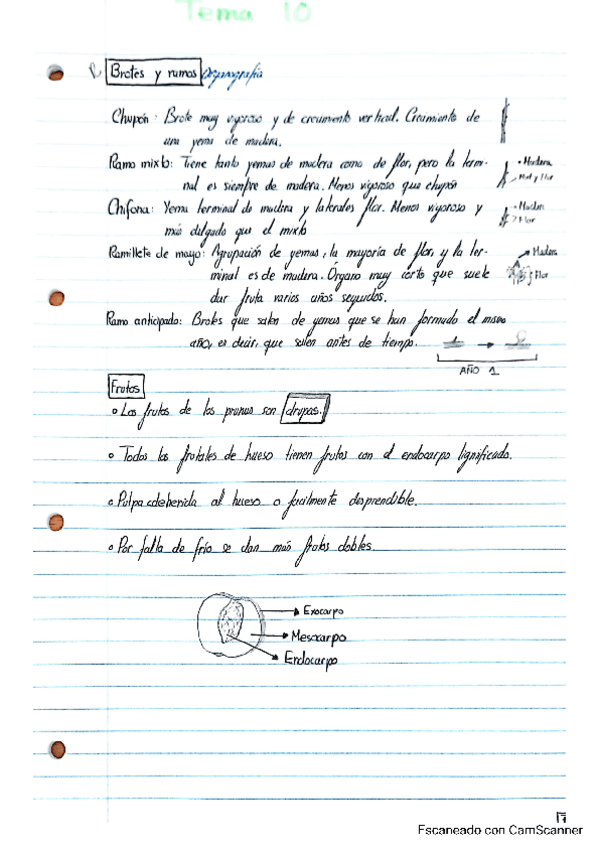 Tema 10
Brotes y ramos Organografía
Chupón: Brote muy vigoroso y de crecimiento vertical. Crecimiento de
una yema de madera.
Ramo mixto: Tiene tanto yemas de madera como de flor, pero la term-
nal es siempre de madera. Menos vigoroso que chupón
• Madera
Mad y flor
Chifona: Yema terminal de madera y laterales flor. Menos vigoroso y
más delgado que el mixto
• Madera
Flor
Ramillete de mayo: Agrupación de yemas, la mayoría de flor, y la ter-
minal es de madera. Órgano muy corto que suele
dar fruta varios años seguidos.
Madera
Flor
Ramo anticipado: Brotes que salen de yemas que se han formado el mismo
año, es decir, que salen antes de tiempo.
AÑO 1
Frutos
• Los frutos de los prunus son drupas.
• Todos los frutales de hueso tienen frutos con el endocarpo lignificado.
• Pulpa adeherida al hueso o facilmente desprendible.
• Por falta de frío se dan más frutos dobles.
Exocarpo
Mesocarpo
Endocarpo
17
Escaneado con CamScanner